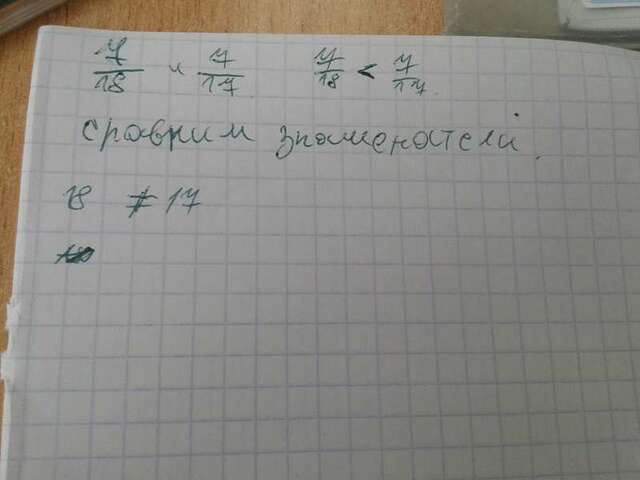 7/18 и 7/17 7/18 < 7/17
сравним знаменатели.
18 ≠ 17